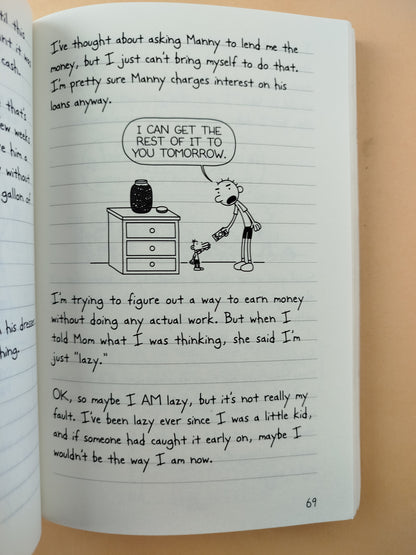 til this
nt it, was
cash.
that's
ew weeks
re him a
without
gallon of
his dresse
hing.
I've thought about asking Manny to lend me the
money, but I just can't bring myself to do that.
I'm pretty sure Manny charges interest on his
loans anyway.
I CAN GET THE
REST OF IT TO
YOU TOMORROW.
I'm trying to figure out a way to earn money
without doing any actual work. But when I
told Mom what I was thinking, she said I'm
just "lazy."
OK, so maybe I AM lazy, but it's not really my
fault. I've been lazy ever since I was a little kid,
and if someone had caught it early on, maybe I
wouldn't be the way I am now.
69